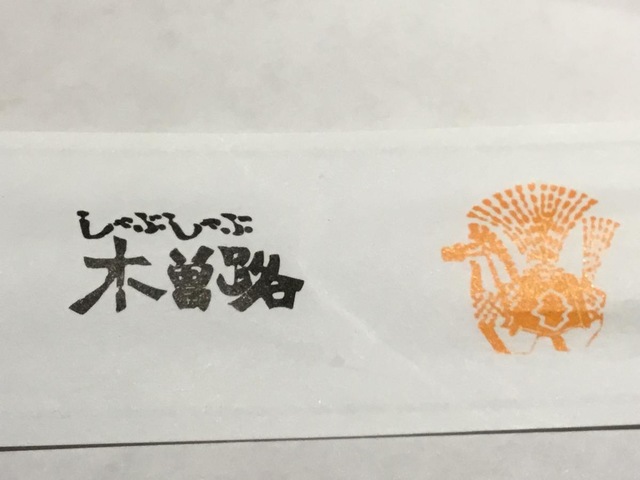 しゃぶしゃぶ
木曽路